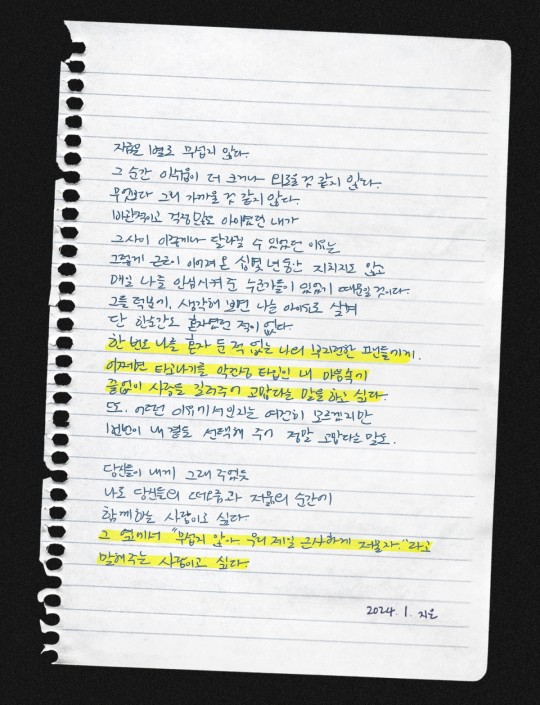 지금은 별로 무섭지 않다.
그 순간 아쉬움이 더 크거나 외로울 것 같지 않다.
무엇보다 그리 가까울 것 같지 않다.
비관적이고 걱정 많던 아이였던 내가
그 사이 이렇게나 달라질 수 있었던 이유는
그렇게 근근이 이어져 온 십몇 년 동안 지치지도 않고
매일 나를 안심시켜 준 누군가들이 있었기 때문일 것이다.
그들 덕분에, 생각해 보면 나는 아이유로 살며
단 한순간도 혼자였던 적이 없다.
한 번도 나를 혼자 둔 적 없는 나의 부지런한 팬들에게.
어쩌면 타고나기를 악건성 타입인 내 마음속에
끝없이 사랑을 길러주어 고맙다는 말을 하고 싶다.
또. 어떤 이유에서인지는 여전히 모르겠지만
매번 내 곁을 선택해 주어 정말 고맙다는 말도.
당신들이 내게 그래 주었듯
나도 당신들의 떠오름과 저묾의 순간에
함께하는 사람이고 싶다.
그 옆에서 "무섭지 않아 우리 제일 근사하게 저물자."라고
말해주는 사람이고 싶다.
2024. 1. 지은